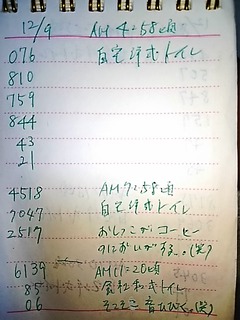 12/9 AM 4:58頃
076 自宅洋式トイレ
810
759
844
43
21
4518 AM 7:58頃
7047 自宅洋式トイレ
2517 おしっこがコーヒー
のにおいがする..(笑)
6139 AM11:20頃
85 会社和式トイレ
06 そこそこ音ひびく。(笑)